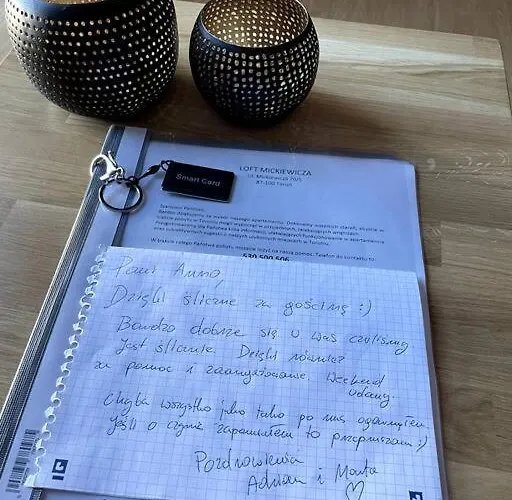 Smart Card
LOFT MICKIEWICZA
ul. Mickiewicza
87-100 Toruń
Szanowni Państwo,
W trakcie całego Państwa pobytu możecie liczyć na naszą pomoc. Telefon do kontaktu to:
530 500 506
Pani Anno,
Dzięki śliczne za gościnę :)
Bardzo dobrze się u Was czuliśmy
Jest ślicznie. Dzięki również
za pomoc i zaangażowanie. Weekend
udany.
Chyba wszystko jako tako po nas ogarnąłem.
Jeśli o czymś zapomniałem to przepraszam :)
Pozdrowienia
Adrian i Marta